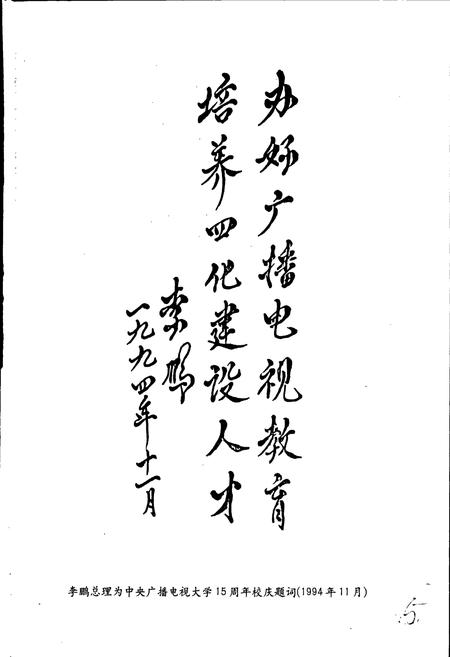 办好广播电视教育
培养四化建设人才
李鹏
一九九四年十一月
李鹏总理为中央广播电视大学15周年校庆题词(1994年11月)